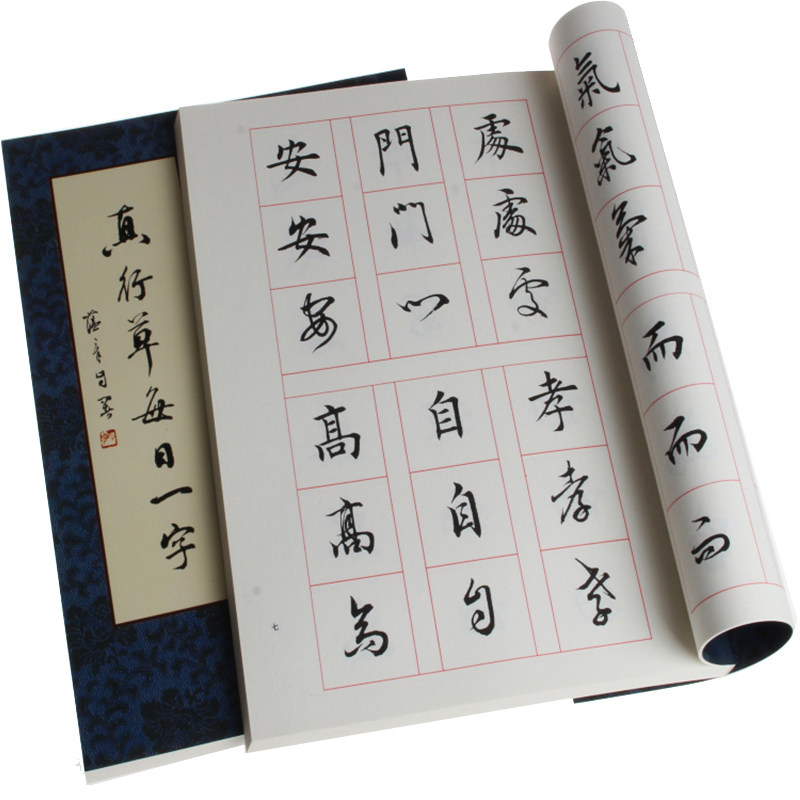 真行草每日一字
氣氣氣
而而而
處處處
門門門
安安安
孝孝孝
自自自
高高高
七